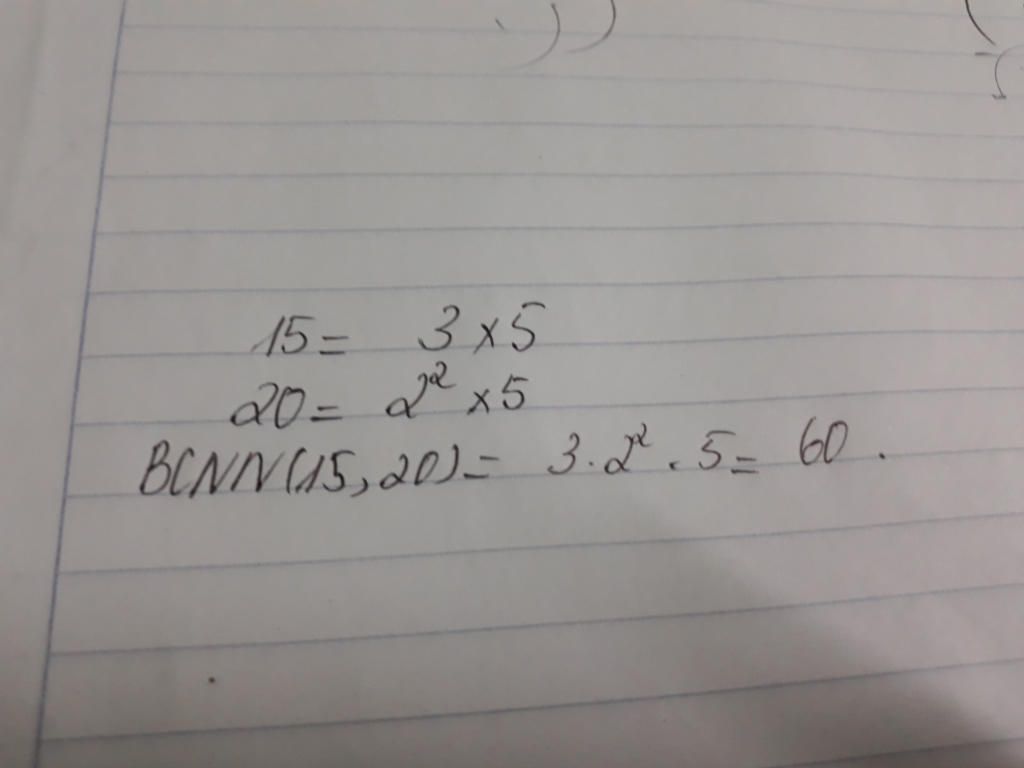 15 = 3 x 5
20 = 2² x 5
BCNN(15, 20) = 3 . 2² . 5 = 60 .